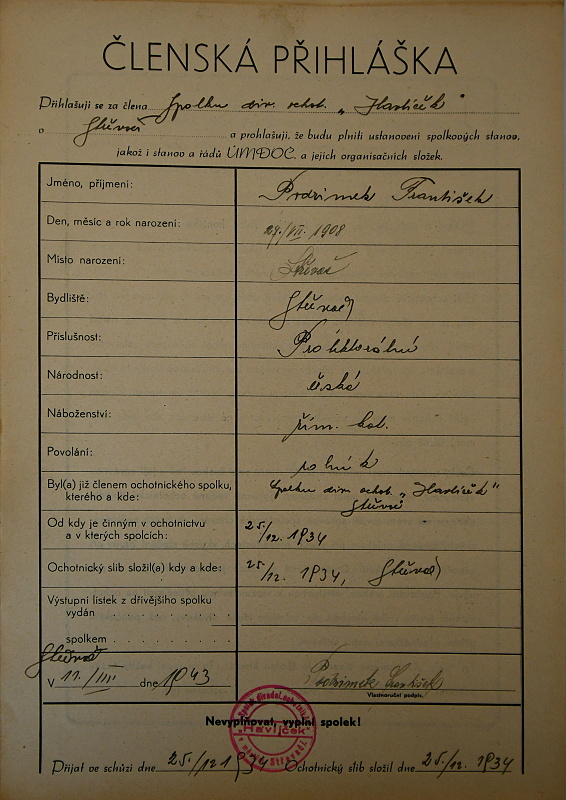 ČLENSKÁ PŘIHLÁŠKA
Přihlašuji se za člena Spolku div. ochot. „Havlíček"
o Stěževě a prohlašuji, že budu plniti ustanovení spolkových stanov,
jakož i stanov a řádů ÚMDOC. a jejich organisačních složek.
Jméno, příjmení: Podzimek František
Den, měsíc a rok narození: 29./VII. 1908
Místo narození:
Bydliště:
Příslušnost: Protektorátní
Národnost: česká
Náboženství: řím. kat.
Povolání: rolník
Byl(a) již členem ochotnického spolku, Spolku div. ochot. „Havlíček"
kterého a kde:
Od kdy je činným v ochotnictvu 25./12. 1934
a v kterých spolcích:
Ochotnický slib složil(a) kdy a kde: 25./12. 1934,
Výstupní lístek z dřívějšího spolku
vydán
spolkem
V 11./III dne 1943 Podzimek František
Vlastnoruční podpis.
Nevyplňovat, vyplní spolek!
„Havlíček"
Přijat ve schůzi dne 25./12 1934 Ochotnický slib složil dne 25./12. 1934